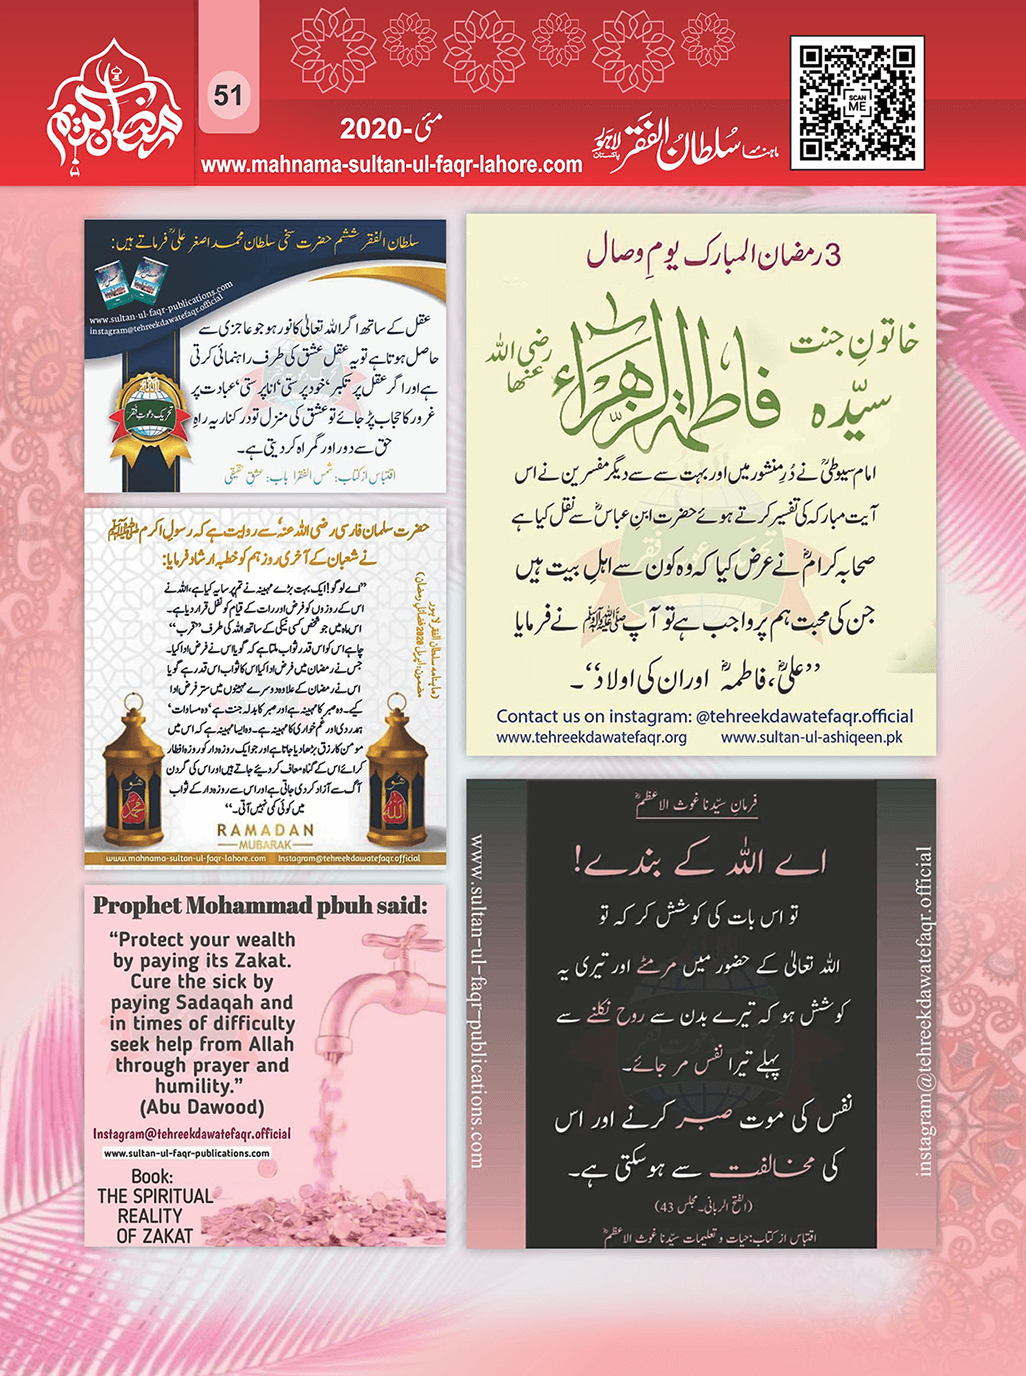 رمضان کریم
51
مئی-2020
ماہنامہ سلطان الفقر لاہور
پاکستان
www.mahnama-sultan-ul-faqr-lahore.com
SCAN
ME
3 رمضان المبارک یومِ وصال
خاتونِ جنت
سیّدہ فاطمۃ الزہراء رضی اللہ عنہا
امام سیوطیؒ نے دُرِ منشور میں اور بہت سے سے دیگر مفسرین نے اس
آیت مبارکہ کی تفسیر کرتے ہوئے حضرت ابنِ عباسؓ سے نقل کیا ہے
صحابہ کرامؓ نے عرض کیا کہ وہ کون سے اہلِ بیت ہیں
جن کی محبت ہم پر واجب ہے تو آپ ﷺ نے فرمایا
’’علیؓ، فاطمہؓ اور ان کی اولاد‘‘۔
Contact us on instagram: @tehreekdawatefaqr.official
www.tehreekdawatefaqr.org www.sultan-ul-ashiqeen.pk
سلطان الفقر ششم حضرت سخی سلطان محمد اصغر علیؒ فرماتے ہیں:
www.sultan-ul-faqr-publications.com
instagram@tehreekdawatefaqr.official
عقل کے ساتھ اگر اللہ تعالیٰ کا نور ہو جو عاجزی سے
حاصل ہوتا ہے تو یہ عقل عشق کی طرف راہنمائی کرتی
ہے اور اگر عقل پر تکبر‘ خود پرستی‘ انا پرستی‘ عبادت پر
غرور کا حجاب پڑ جائے تو عشق کی منزل تو درکنار یہ راہِ
حق سے دور اور گمراہ کر دیتی ہے۔
تحریک دعوتِ فقر
اقتباس از کتاب: شمس الفقرا باب: عشقِ حقیقی
حضرت سلمان فارسی رضی اللہ عنہٗ سے روایت ہے کہ رسولِ اکرم ﷺ
نے شعبان کے آخری روز ہم کو خطبہ ارشاد فرمایا:
’’اے لوگو! ایک بہت بڑے مہینے نے تم پر سایہ کیا ہے، اللہ نے
اس کے روزوں کو فرض اور رات کے قیام کو نفل قرار دیا ہے۔
اس ماہ میں جو شخص کسی نیکی کے ساتھ اللہ کی طرف ’’قرب‘‘
چاہے اس کو اس قدر ثواب ملتا ہے کہ گویا اس نے فرض ادا کیا۔
جس نے رمضان میں فرض ادا کیا اس کا ثواب اس قدر ہے گویا
اس نے رمضان کے علاوہ دوسرے مہینوں میں ستر فرض ادا
کیے۔ وہ صبر کا مہینہ ہے اور صبر کا بدلہ جنت ہے‘ وہ مساوات‘
ہمدردی اور غم خواری کا مہینہ ہے۔ وہ ایسا مہینہ ہے کہ اس میں
مومن کا رزق بڑھا دیا جاتا ہے اور جو ایک روزہ دار کو روزہ افطار
کرائے اس کے گناہ معاف کر دیئے جاتے ہیں اور اس کی گردن
آگ سے آزاد کر دی جاتی ہے اور اس سے روزہ دار کے ثواب
میں کوئی کمی نہیں آتی۔‘‘
(ماہنامہ سلطان الفقر لاہور
مضمون، اپریل 2020 فضائلِ رمضان)
ھُو
محمد
ھُو
اللہ
RAMADAN
MUBARAK
www.mahnama-sultan-ul-faqr-lahore.com Instagram@tehreekdawatefaqr.official
Prophet Mohammad pbuh said:
“Protect your wealth
by paying its Zakat.
Cure the sick by
paying Sadaqah and
in times of difficulty
seek help from Allah
through prayer and
humility.”
(Abu Dawood)
Instagram@tehreekdawatefaqr.official
www.sultan-ul-faqr-publications.com
Book:
THE SPIRITUAL
REALITY
OF ZAKAT
فرمان سیّدنا غوث الاعظمؓ
اے اللہ کے بندے!
تو اس بات کی کوشش کر کہ تو
اللہ تعالیٰ کے حضور میں مرمٹے اور تیری یہ
کوشش ہو کہ تیرے بدن سے روح نکلنے سے
پہلے تیرا نفس مر جائے۔
نفس کی موت صبر کرنے اور اس
کی مخالفت سے ہوسکتی ہے۔
(الفتح الربانی۔ مجلس 43)
اقتباس از کتاب: حیات و تعلیمات سیّدنا غوث الاعظمؓ
www.sultan-ul-faqr-publications.com
instagram@tehreekdawatefaqr.official